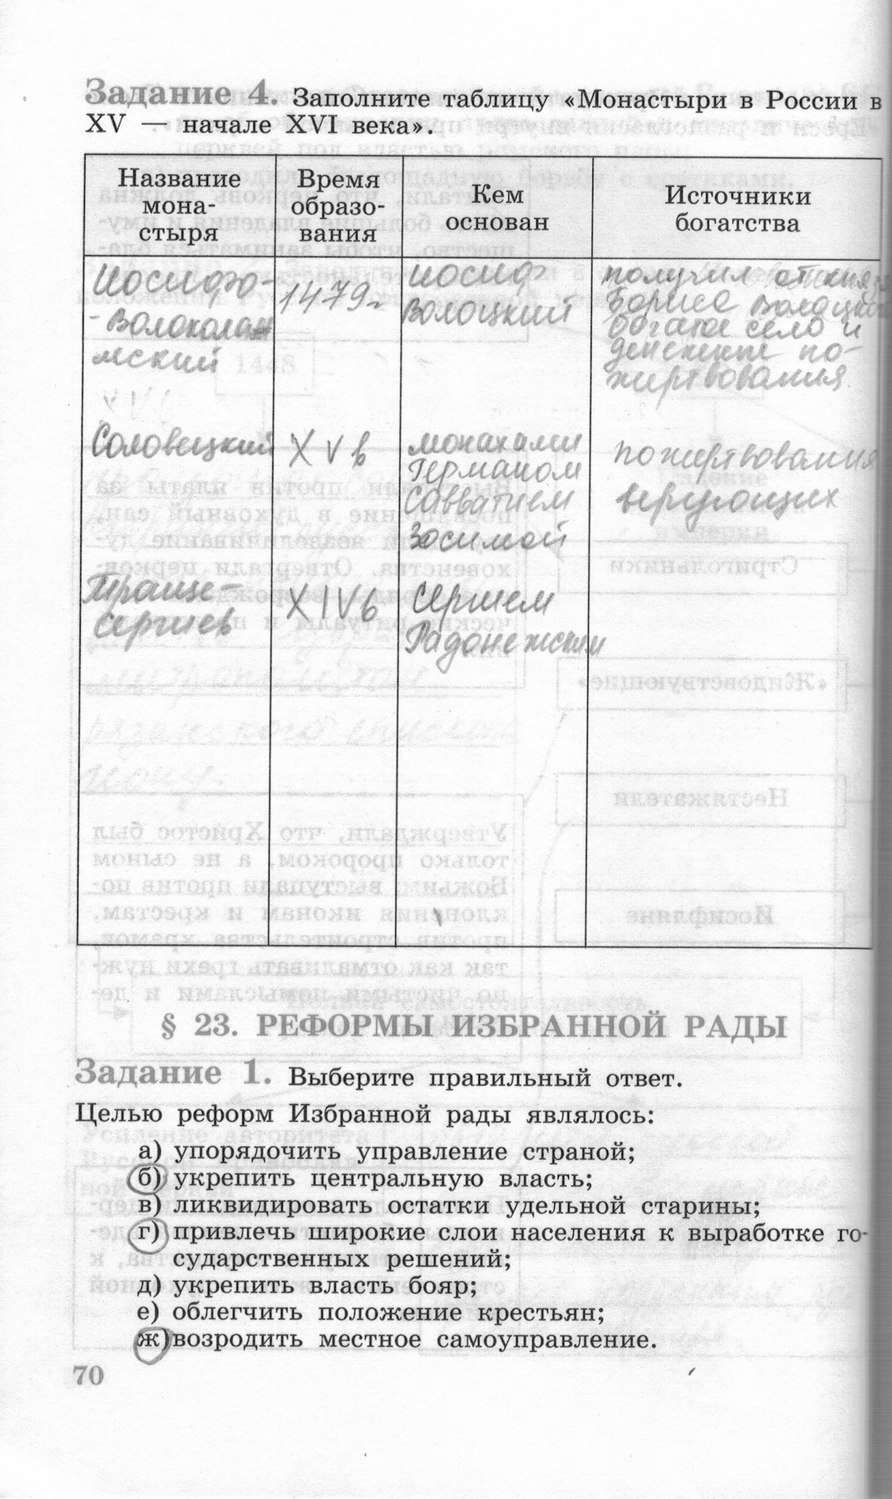 Задание 4. Заполните таблицу «Монастыри в России в
XV — начале XVI века».
Название
мона-
стыря
Время
образо-
вания
Кем
основан
Источники
богатства
Иосифо-
-Волоколам
мский
1479г
Иосиф
Волоцкий
получил от кня
Бориса Волоцко
богатое село и
денежные по-
жертвования
Соловецкий
XVв
монахами
Германом
Савватием
Зосимой
пожертвования
верующих
Троице-
Сергиев
XIVв
Сергием
Радонежским
§ 23. РЕФОРМЫ ИЗБРАННОЙ РАДЫ
Задание 1. Выберите правильный ответ.
Целью реформ Избранной рады являлось:
а) упорядочить управление страной;
б) укрепить центральную власть;
в) ликвидировать остатки удельной старины;
г) привлечь широкие слои населения к выработке го-
сударственных решений;
д) укрепить власть бояр;
е) облегчить положение крестьян;
ж) возродить местное самоуправление.
70